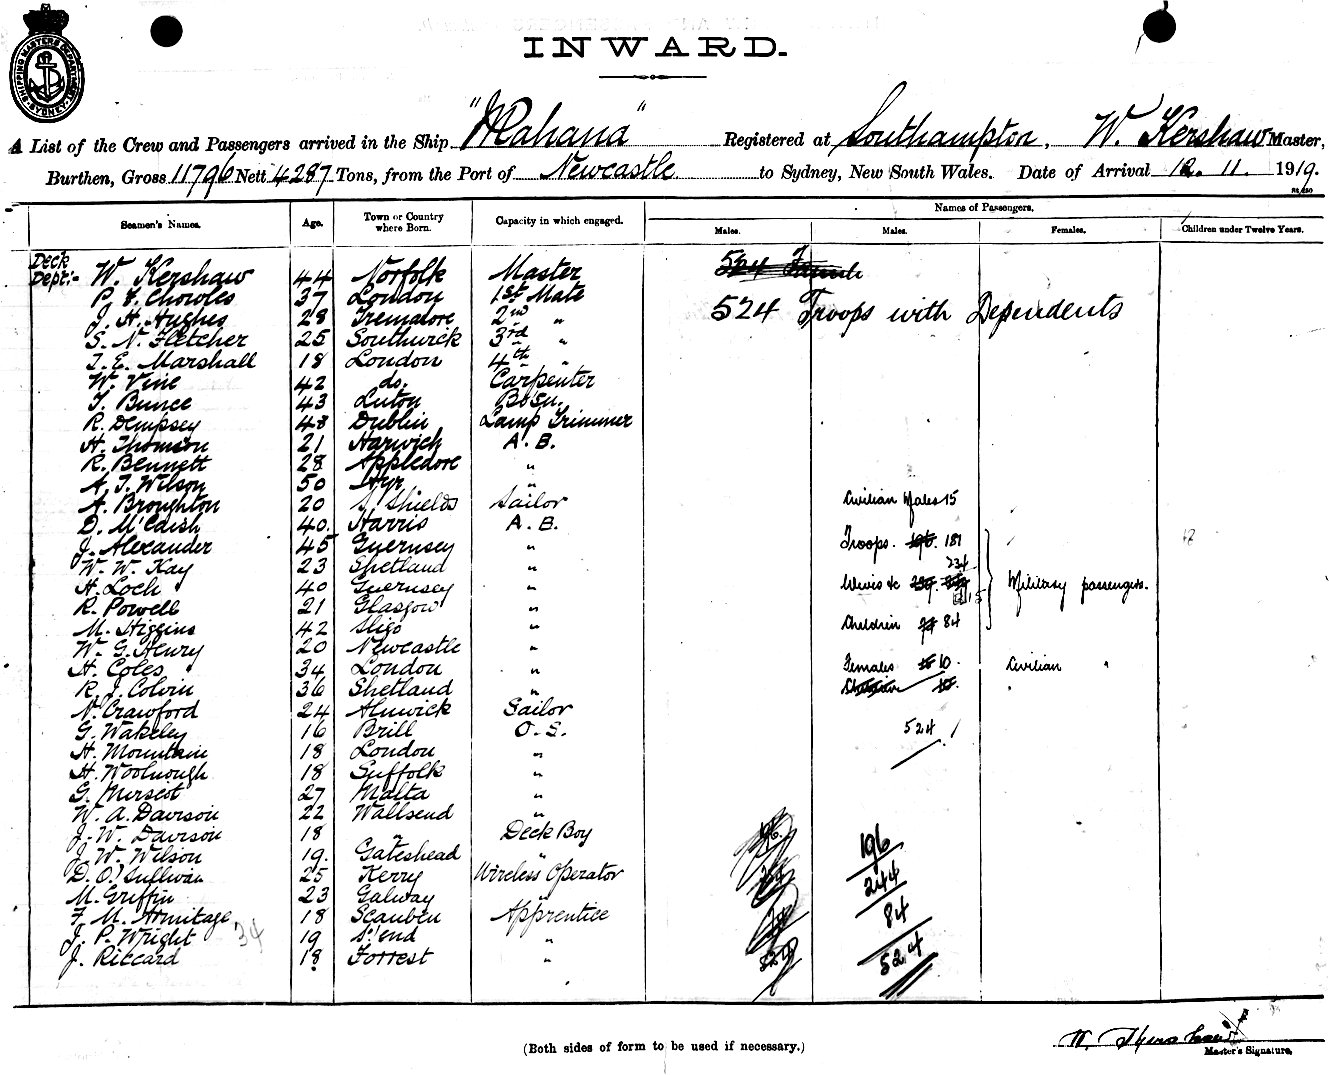 SHIPPING MASTERS DEPARTMENT SYDNEY
INWARD.
A List of the Crew and Passengers arrived in the Ship "Mahana" Registered at Southampton, W. Kershaw Master,
Burthen, Gross 11796 Nett 4287 Tons, from the Port of Newcastle to Sydney, New South Wales. Date of Arrival 12. 11. 1919.
Names of Passengers.
Seamen's Names. Age. Town or Country where Born. Capacity in which engaged. Males. Males. Females. Children under Twelve Years.
Deck
Dept:- W. Kershaw 44 Norfolk Master
P. E. Chowles 37 London 1st Mate 524 Troops with Dependents
J. H. Hughes 28 2nd "
S. N. Fletcher 25 Southwick 3rd "
T. E. Marshall 18 London 4th "
W. Vine 42 do. Carpenter
T. Bunce 43 Luton Bosn.
R. Dempsey 48 Dublin Lamp Trimmer
H. Thomson 21 Harwich A. B.
R. Bennett 28 Appledore "
A. T. Wilson 50 Ayr "
A. Broughton 20 S. Shields Sailor Civilian Males 15
D. McCaish 40. Harris A. B.
J. Alexander 45 Guernsey " Troops. 196. 181
W. W. Kay 23 Shetland " 234
H. Loch 40 Guernsey " Wives &c Military passengers.
R. Powell 21 Glasgow "
M. Higgins 42 Sligo " Children 84
W. G. Henry 20 Newcastle "
H. Coles 34 London " Females 10. Civilian "
R. J. Colvin 36 Shetland "
N. Crawford 24 Alnwick Sailor
G. Wakeley 16 Brill O. S. 524
H. Mountain 18 London "
H. Woolnough 18 Suffolk "
G. 27 Malta "
W. A. Davison 22 Wallsend "
J. W. Davison 18 " Deck Boy 196
J. W. Wilson 19. Gateshead "
D. O'Sullivan 25 Kerry Wireless Operator 244
M. Griffin 23 Galway "
F. M. Armitage 18 Apprentice 84
J. P. Wright 34 19 S'end "
J. Riccard 18 Forrest " 524
(Both sides of form to be used if necessary.)
W. Kershaw
Master's Signature.